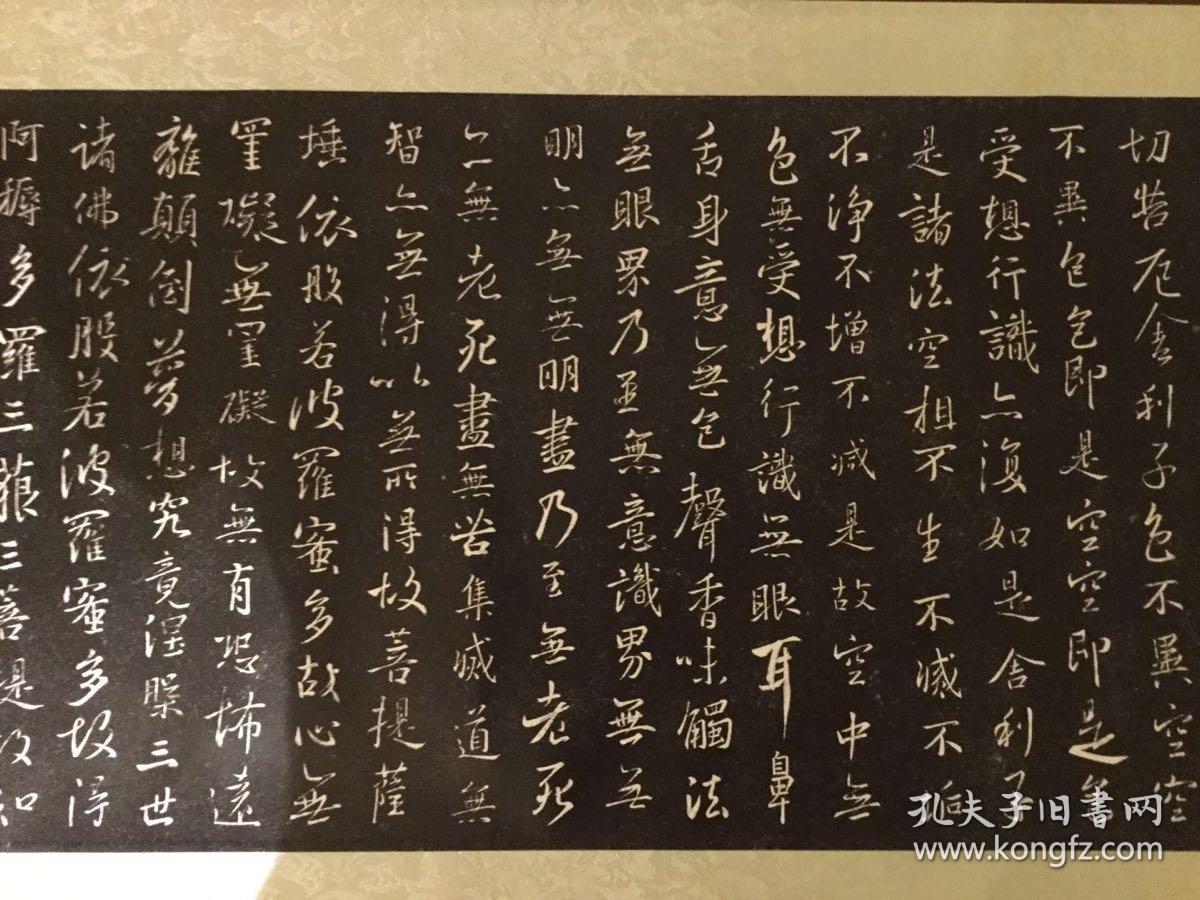 切苦厄舍利子色不異空空
不異色色即是空空即是色
受想行識亦復如是舍利子
是諸法空相不生不滅不垢
不淨不增不減是故空中無
色無受想行識無眼耳鼻
舌身意無色聲香味觸法
無眼界乃至無意識界無無
明亦無無明盡乃至無老死
亦無老死盡無苦集滅道無
智亦無得以無所得故菩提薩
埵依般若波羅蜜多故心無
罣礙無罣礙故無有恐怖遠
離顛倒夢想究竟涅槃三世
諸佛依般若波羅蜜多故得
阿耨多羅三藐三菩提故知
孔夫子旧书网
www.kongfz.com